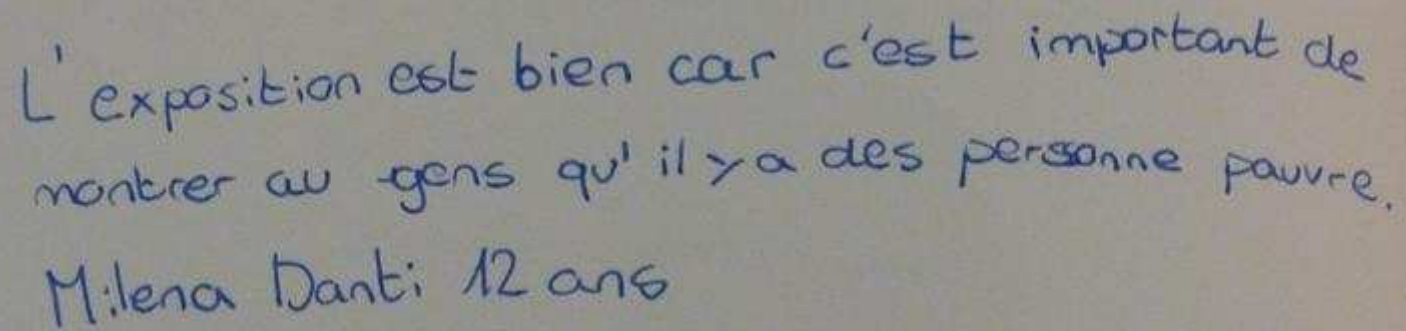 L'exposition est bien car c'est important de
montrer au gens qu'il y a des personne pauvre.
Milena Danti 12 ans